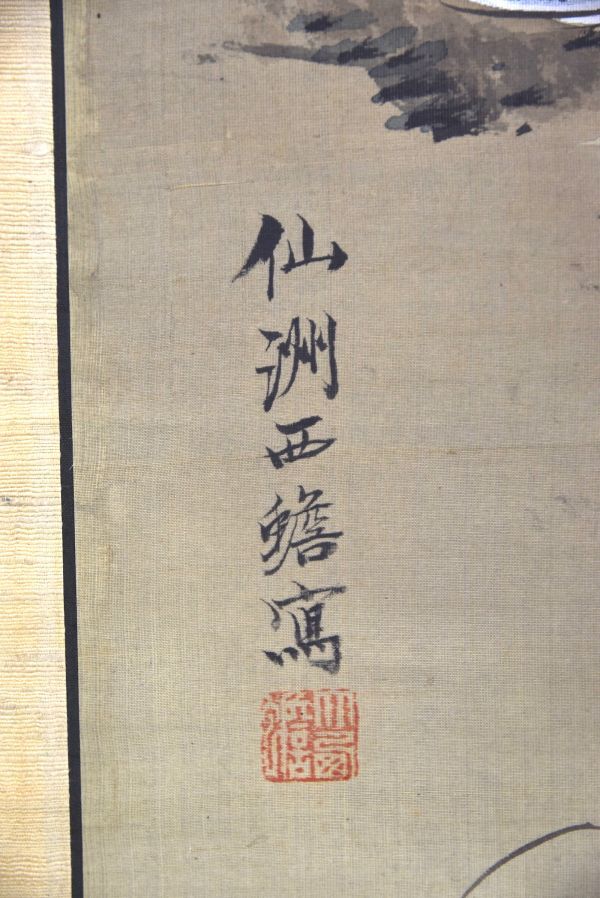 仙洲西蟾寫